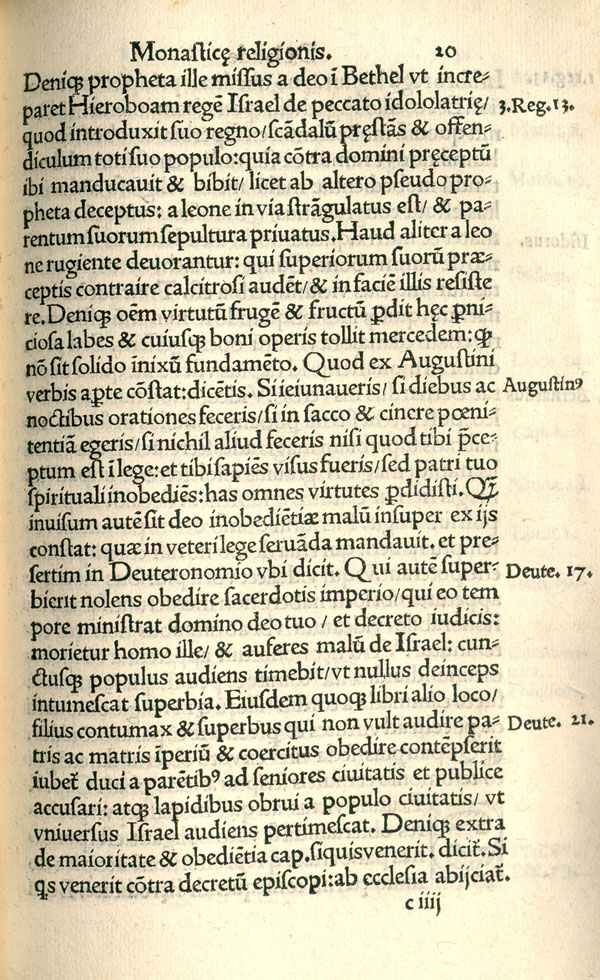 Monasticę religionis. 20
Deniqꝫ propheta ille missus a deo ī Bethel vt incre⸗
paret Hieroboam regē Israel de peccato idololatrię/ 3.Reg.13.
quod introduxit suo regno/scādalū pręstās & offen⸗
diculum toti suo populo:quia cōtra domini pręceptū
ibi manducauit & bibit/ licet ab altero pseudo pro⸗
pheta deceptus: a leone in via strāgulatus est/ & pa⸗
rentum suorum sepultura priuatus.Haud aliter a leo
ne rugiente deuorantur: qui superiorum suorū præ⸗
ceptis contraire calcitrosi audēt/& in faciē illis resiste
re.Deniqꝫ oēm virtutū frugē & fructū ꝑdit hęc ꝑni⸗
ciosa labes & cuiusqꝫ boni operis tollit mercedem: ꝙ
nō sit solido īnixū fundamēto. Quod ex Augustini
verbis aꝑte cōstat:dicētis. Si ieiunaueris/ si diebus ac Augustinꝰ
noctibus orationes feceris/si in sacco & cinere pœni⸗
tentiā egeris/si nichil aliud feceris nisi quod tibi p̄ce⸗
ptum est ī lege:et tibi sapiēs visus fueris/sed patri tuo
spirituali inobediēs:has omnes virtutes ꝑdidisti.Qꝫ
inuisum autē sit deo inobediētiæ malū insuper ex ijs
constat: quæ in veteri lege seruāda mandauit. et pre⸗
sertim in Deuteronomio vbi dicit. Qui autē super⸗ Deute. 17.
bierit nolens obedire sacerdotis imperio/qui eo tem
pore ministrat domino deo tuo / et decreto iudicis:
morietur homo ille/ & auferes malū de Israel: cun⸗
ctusqꝫ populus audiens timebit/vt nullus deinceps
intumescat superbia. Eiusdem quoqꝫ libri alio loco/
filius contumax & superbus qui non vult audire pa⸗ Deute. 21.
tris ac matris īperiū & coercitus obedire contēpserit
iubet᷑ duci a parētibꝰ ad seniores ciuitatis et publice
accusari: atqꝫ lapidibus obrui a populo ciuitatis/ vt
vniuersus Israel audiens pertimescat. Deniqꝫ extra
de maioritate & obediētia cap.siquis venerit. dicit᷑. Si
qͥs venerit cōtra decretū episcopi:ab ecclesia abijciat᷑.
c iiij